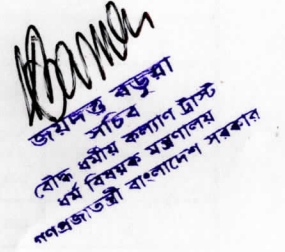 জয়দত্ত বড়ুয়া
সচিব
বৌদ্ধ ধর্মীয় কল্যাণ ট্রাস্ট
ধর্ম বিষয়ক মন্ত্রণালয়
গণপ্রজাতন্ত্রী বাংলাদেশ সরকার